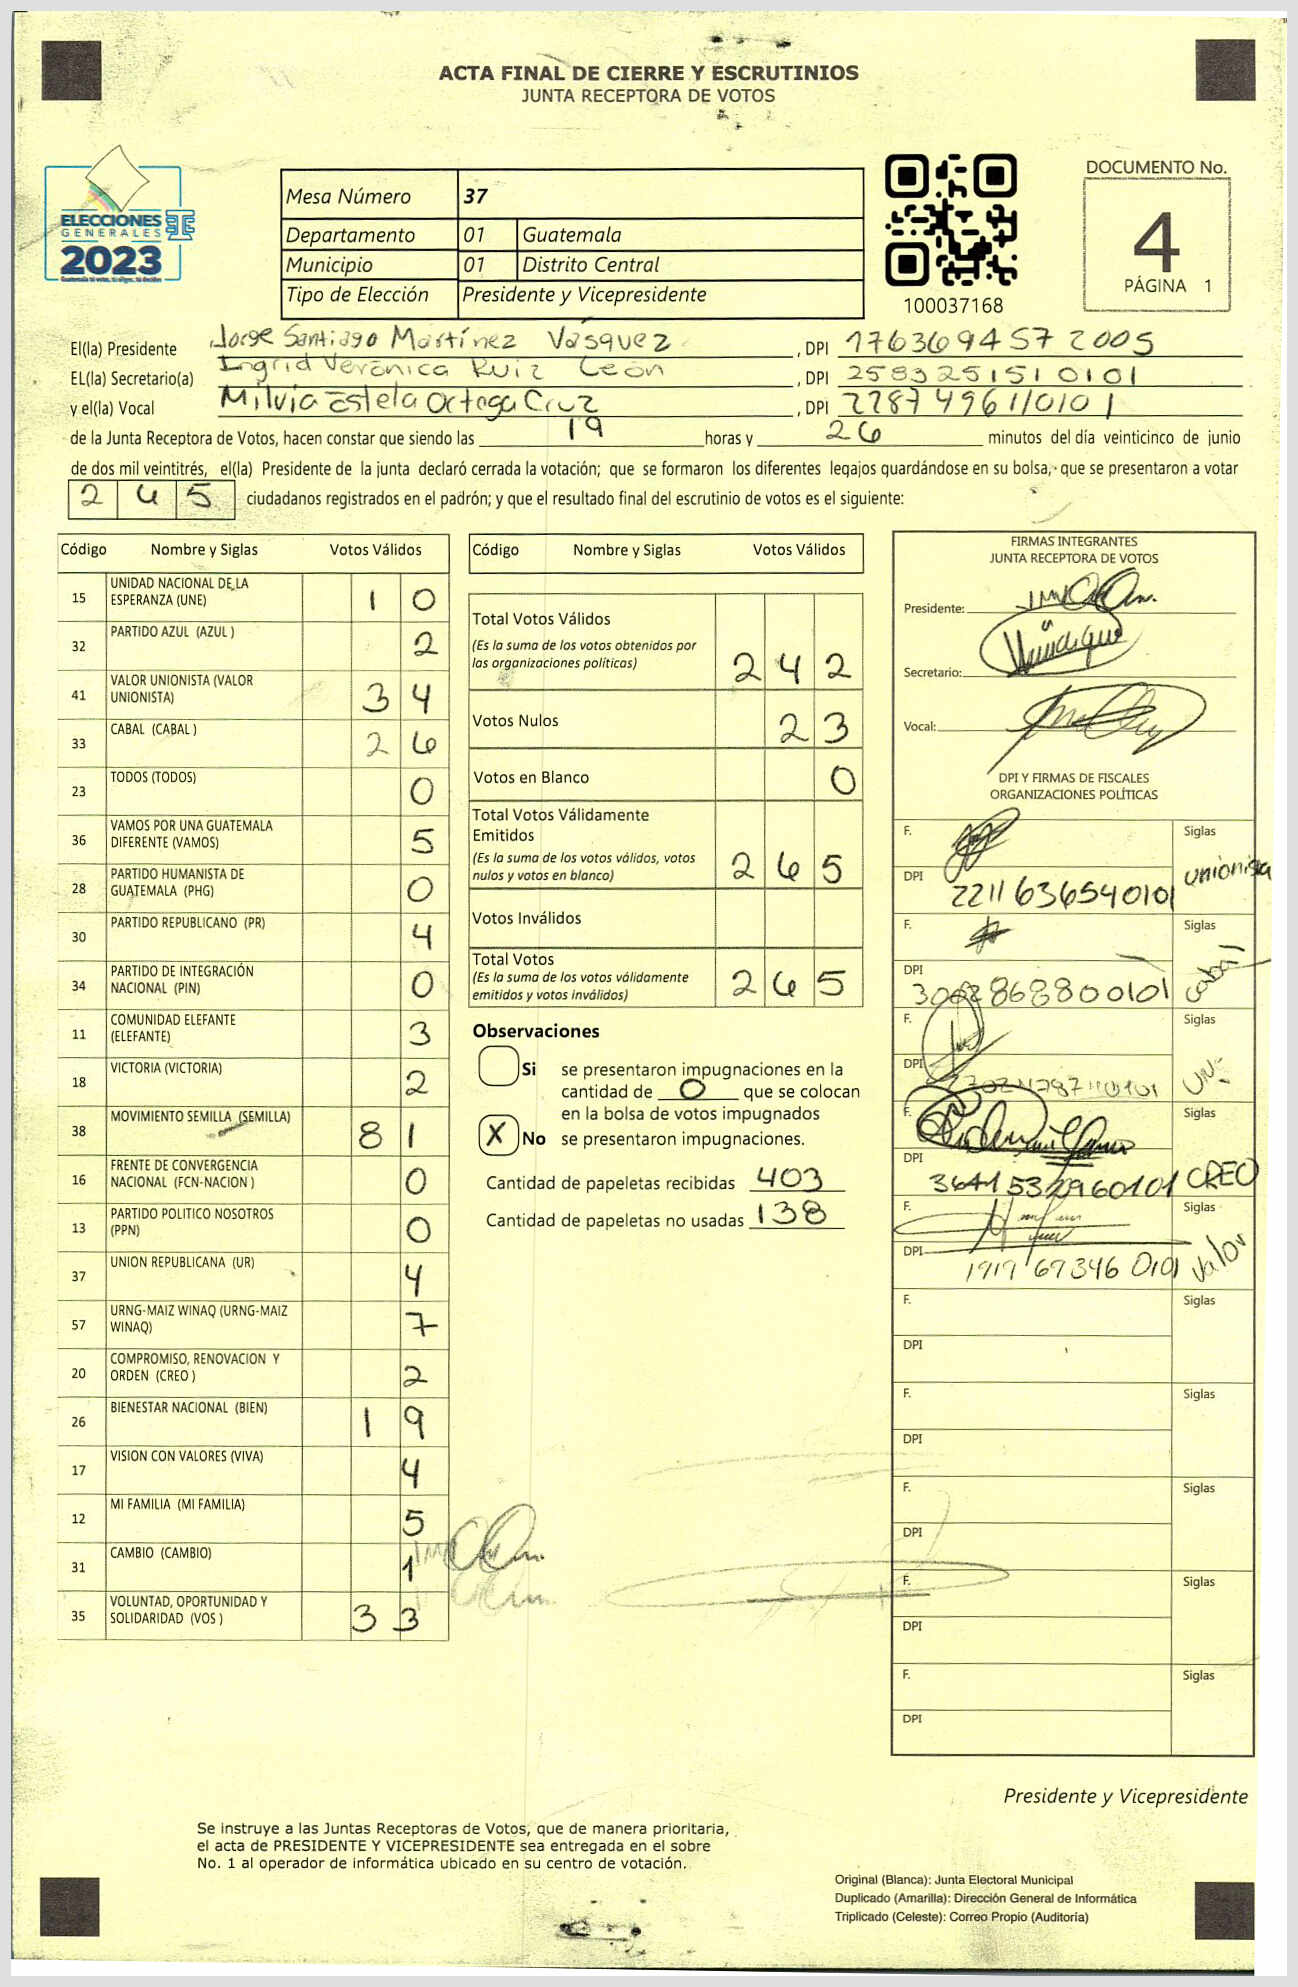 ACTA FINAL DE CIERRE Y ESCRUTINIOS
JUNTA RECEPTORA DE VOTOS
ELECCIONES
GENERALES
2023
Mesa Número 37
Departamento 01 Guatemala
Municipio 01 Distrito Central
Tipo de Elección Presidente y Vicepresidente
100037168
DOCUMENTO No.
4
PÁGINA 1
El(la) Presidente Jorge Santiago Martínez Vásquez , DPI 1763694572005
EL(la) Secretario(a) Ingrid Verónica Ruiz León , DPI 2583251510101
y el(la) Vocal Milvia Estela Ortega Cruz , DPI 2287496110101
de la Junta Receptora de Votos, hacen constar que siendo las 19 horas y 26 minutos del día veinticinco de junio
de dos mil veintitrés, el(la) Presidente de la junta declaró cerrada la votación; que se formaron los diferentes legajos guardándose en su bolsa, que se presentaron a votar
245 ciudadanos registrados en el padrón; y que el resultado final del escrutinio de votos es el siguiente:
Código Nombre y Siglas Votos Válidos
15 UNIDAD NACIONAL DE LA ESPERANZA (UNE) 10
32 PARTIDO AZUL (AZUL ) 2
41 VALOR UNIONISTA (VALOR UNIONISTA) 34
33 CABAL (CABAL ) 26
23 TODOS (TODOS) 0
36 VAMOS POR UNA GUATEMALA DIFERENTE (VAMOS) 5
28 PARTIDO HUMANISTA DE GUATEMALA (PHG) 0
30 PARTIDO REPUBLICANO (PR) 4
34 PARTIDO DE INTEGRACIÓN NACIONAL (PIN) 0
11 COMUNIDAD ELEFANTE (ELEFANTE) 3
18 VICTORIA (VICTORIA) 2
38 MOVIMIENTO SEMILLA (SEMILLA) 81
16 FRENTE DE CONVERGENCIA NACIONAL (FCN-NACION ) 0
13 PARTIDO POLITICO NOSOTROS (PPN) 0
37 UNION REPUBLICANA (UR) 4
57 URNG-MAIZ WINAQ (URNG-MAIZ WINAQ) 7
20 COMPROMISO, RENOVACION Y ORDEN (CREO ) 2
26 BIENESTAR NACIONAL (BIEN) 19
17 VISION CON VALORES (VIVA) 4
12 MI FAMILIA (MI FAMILIA) 5
31 CAMBIO (CAMBIO) 1
35 VOLUNTAD, OPORTUNIDAD Y SOLIDARIDAD (VOS ) 33
Código Nombre y Siglas Votos Válidos
Total Votos Válidos
(Es la suma de los votos obtenidos por
las organizaciones políticas) 242
Votos Nulos 23
Votos en Blanco 0
Total Votos Válidamente
Emitidos
(Es la suma de los votos válidos, votos
nulos y votos en blanco) 265
Votos Inválidos
Total Votos
(Es la suma de los votos válidamente
emitidos y votos inválidos) 265
Observaciones
Si se presentaron impugnaciones en la
cantidad de 0 que se colocan
en la bolsa de votos impugnados
X No se presentaron impugnaciones.
Cantidad de papeletas recibidas 403
Cantidad de papeletas no usadas 138
FIRMAS INTEGRANTES
JUNTA RECEPTORA DE VOTOS
Presidente:
Secretario:
Vocal:
DPI Y FIRMAS DE FISCALES
ORGANIZACIONES POLÍTICAS
F. Siglas
DPI 2211636540101 unionista
F. Siglas
DPI 3002868800101 Cabal
F. Siglas
DPI UNE
F. Siglas
DPI 3641532960101 CREO
F. Siglas
DPI 1919693460101 valor
F. Siglas
DPI
F. Siglas
DPI
F. Siglas
DPI
F. Siglas
DPI
F. Siglas
DPI
Presidente y Vicepresidente
Se instruye a las Juntas Receptoras de Votos, que de manera prioritaria,
el acta de PRESIDENTE Y VICEPRESIDENTE sea entregada en el sobre
No. 1 al operador de informática ubicado en su centro de votación.
Original (Blanca): Junta Electoral Municipal
Duplicado (Amarilla): Dirección General de Informática
Triplicado (Celeste): Correo Propio (Auditoría)